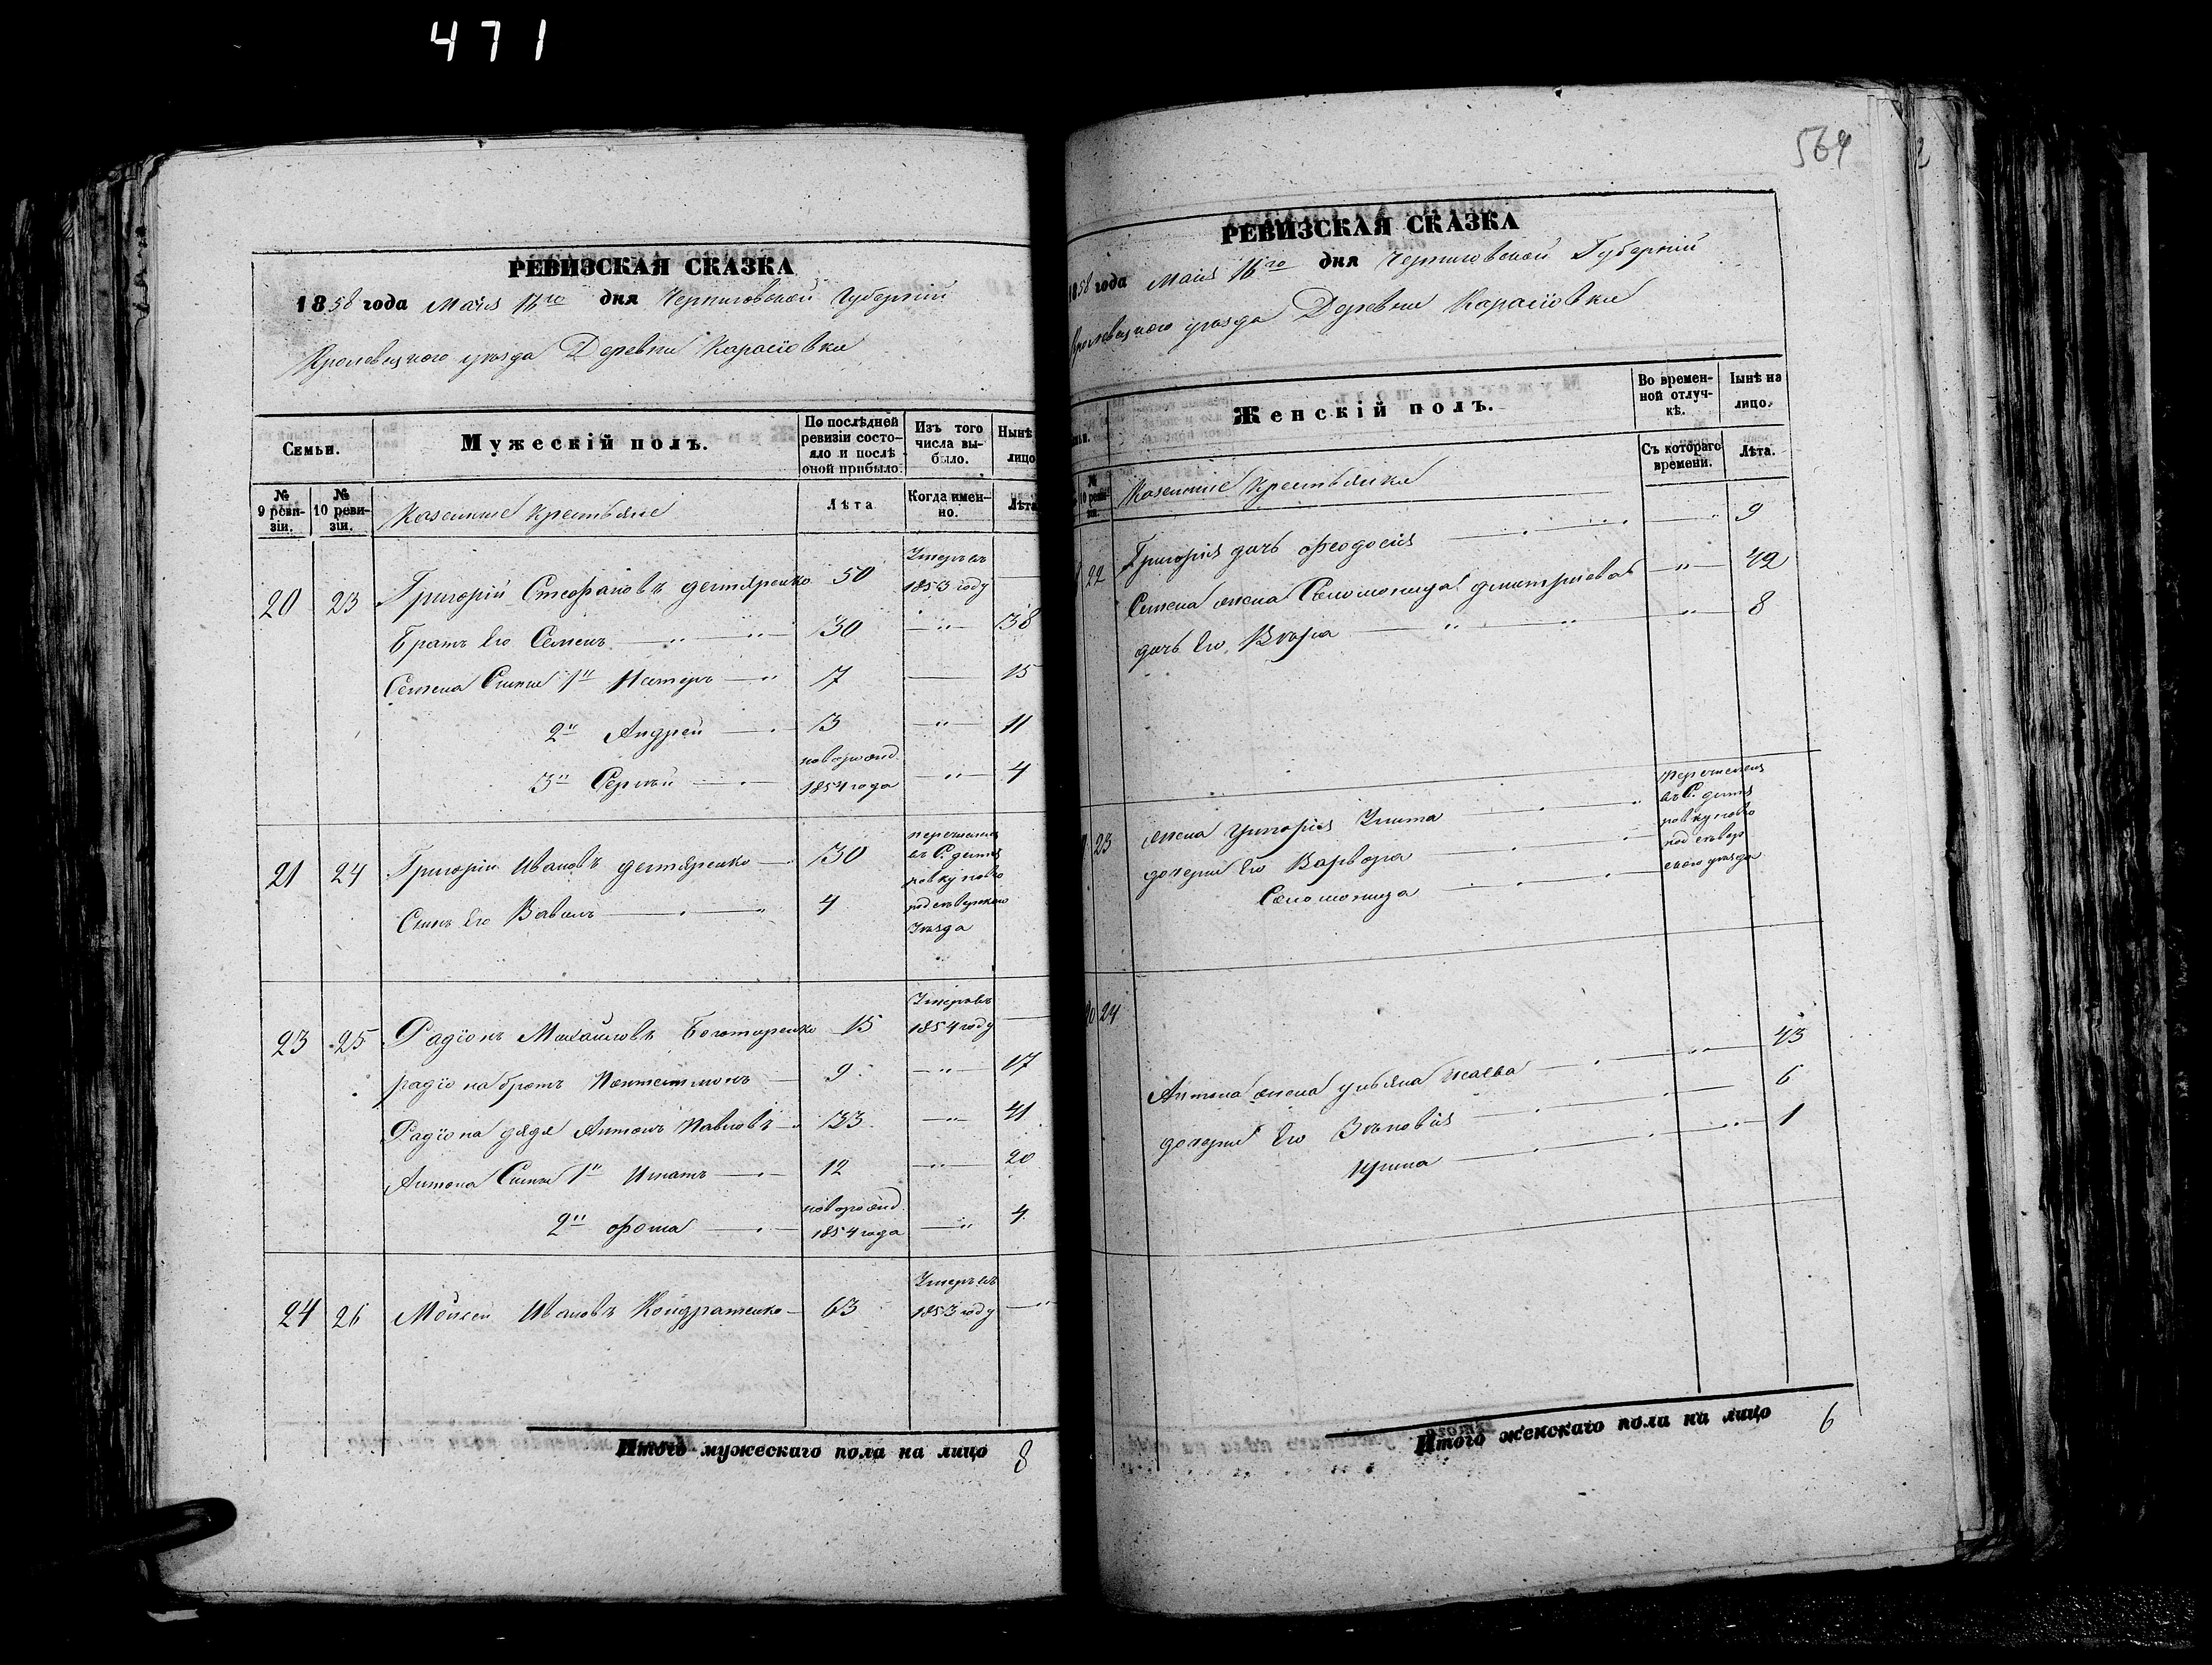 471
РЕВИЗСКАЯ СКАЗКА
1858 года Маия 16го дня Черниговской Губерніи
Кролевецкого уезда Деревни Карасіовки
Семьи.
Мужескій полъ.
По послѣдней ревизіи состояло и послѣ оной прибыло.
Изъ того числа выбыло.
Нынѣ лицо
№ 9 ревизіи.
№ 10 ревизіи.
Казенные крестьяне
Лѣта
Когда именно.
Лѣта
20 23 Григорій Стефановъ дегтяренко 50 Умеръ въ 1853 году
Братъ Его Семенъ 30 38
Семена Сыны 1й Нестеръ 7 15
2й Андрей 3 11
3й Сергѣй новорожд. 1854 года 4
21 24 Григорій Ивановъ дегтяренко 30 перечислены въ С. дегтяровку новгородсѣверского Уѣзда
Сынъ Его Вавилъ 4
23 25 Радіонъ Михайловъ 15 Умеръ въ 1854 году
радіона братъ Пантелимонъ 9 17
Радіона дядя Антонъ Павловъ 33 41
Антона Сыны 1й Игнатъ 12 20
2й фома новорожд. 1854 года 4
24 26 Мойсей Ивановъ Кондратенко 63 Умеръ въ 1853 году
Итого мужескаго пола на лицо 8
564
РЕВИЗСКАЯ СКАЗКА
1858 года Маия 16го дня Черниговской Губерніи
Кролевецкого уезда Деревни Карасіовки
Женскій полъ.
Во временной отлучкѣ.
Нынѣ на лицо.
№ 10 ревизіи.
Казенные крестьянки
Съ котораго времени.
Лѣта.
22 Григорія дочь феодосия 9
Семена жена Соломонида дмитриева 42
дочь Его Вѣра 8
23 жена Григорія Улита перечислена въ С. дегтяровку новгородсѣверского уѣзда
дочери Его Варвара
Соломонида
24
Антона жена ульяна 43
дочери Его 6
Ирина 1
Итого женскаго пола на лицо 6